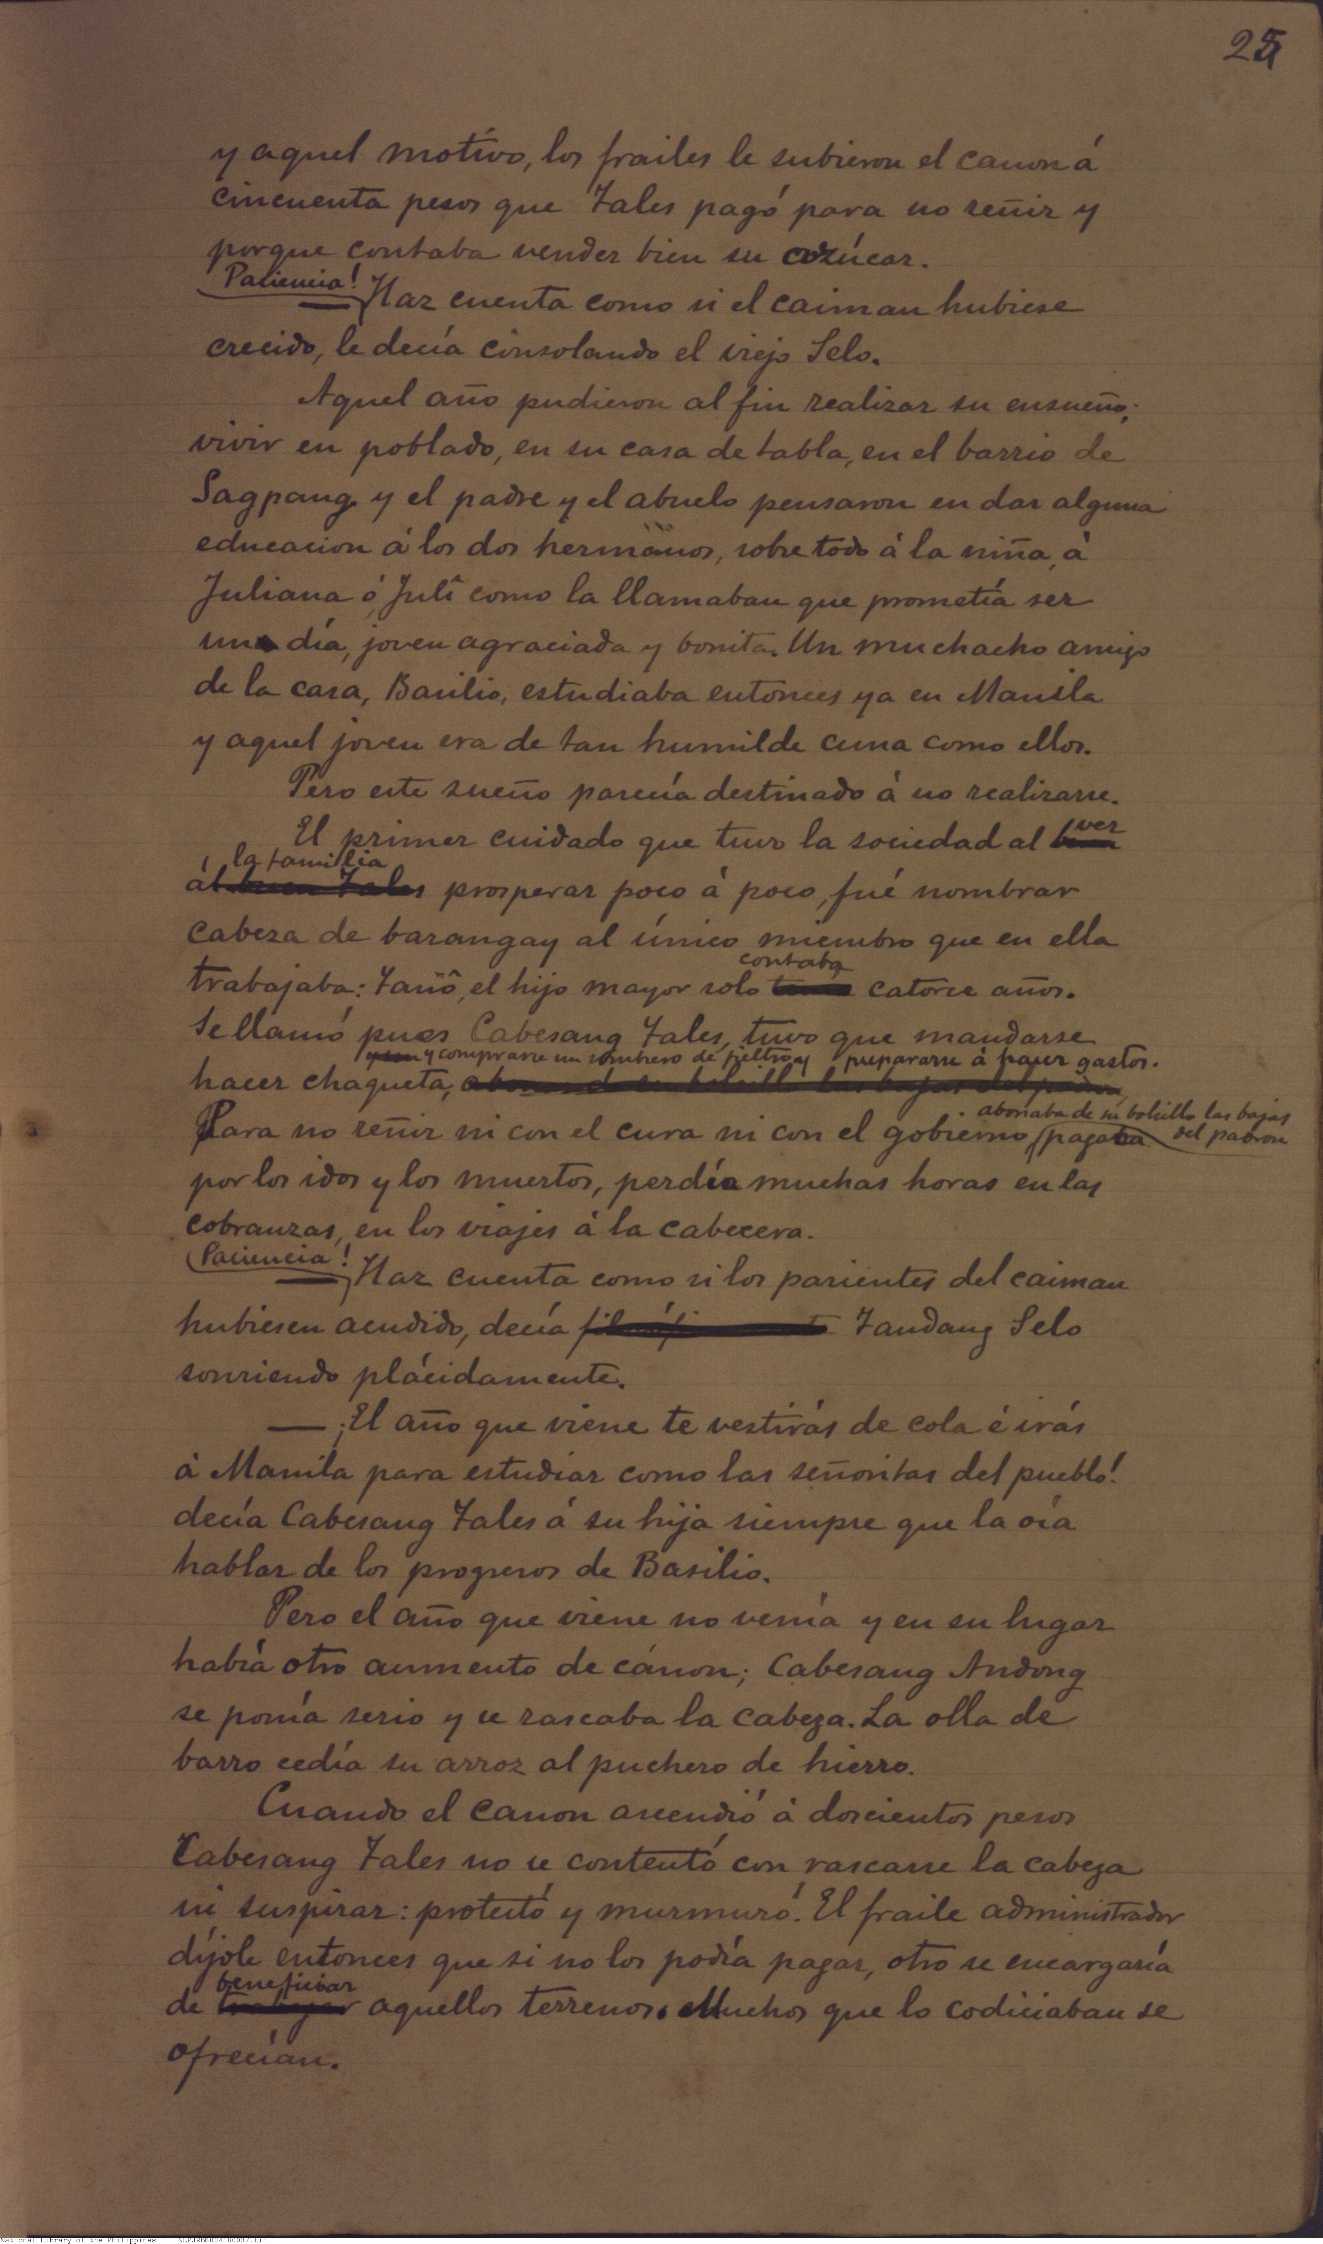 25
y aquel motivo, los frailes le subieron el canon á
cincuenta pesos que Tales pagó para no reñir y
porque contaba vender bien su azúcar.
Paciencia!
— Haz cuenta como si el caiman hubiese
crecido, le decía consolando el viejo Selo.
Aquel año pudieron al fin realizar su ensueño:
vivir en poblado, en su casa de tabla, en el barrio de
Sagpang y el padre y el abuelo pensaron en dar alguna
educacion á los dos hermanos, sobre todo á la niña, á
Juliana ó Julî como la llamaban que prometía ser
un día, joven agraciada y bonita. Un muchacho amigo
de la casa, Basilio, estudiaba entonces ya en Manila
y aquel joven era de tan humilde cuna como ellos.
Pero este sueño parecía destinado á no realizarse.
El primer cuidado que tuvo la sociedad al ver
la familia
ál buen Tales prosperar poco á poco, fué nombrar
cabeza de barangay al único miembro que en ella
contaba
trabajaba: Tanô, el hijo mayor solo tenía catorce años.
Se llamó pues Cabesang Tales, tuvo que mandarse
y comprarse un sombrero de fieltro y prepararse á hacer gastos.
hacer chaqueta,
abonaba de su bolsillo las bajas
Para no reñir ni con el cura ni con el gobierno pagaba
del padron
por los idos y los muertos, perdía muchas horas en las
cobranzas, en los viajes á la cabecera.
Paciencia!
— Haz cuenta como si los parientes del caiman
hubiesen acudido, decía Tandang Selo
sonriendo plácidamente.
— ¡El año que viene te vestirás de cola é irás
á Manila para estudiar como las señoritas del pueblo!
decía Cabesang Tales á su hija siempre que la oía
hablar de los progresos de Basilio.
Pero el año que viene no venía y en su lugar
había otro aumento de cánon; Cabesang Andong
se ponía serio y se rascaba la cabeza. La olla de
barro cedía su arroz al puchero de hierro.
Cuando el canon ascendió á doscientos pesos
Cabesang Tales no se contentó con rascarse la cabeza
ni suspirar: protestó y murmuró. El fraile administrador
díjole entonces que si no los podía pagar, otro se encargaría
beneficiar
de trabajar aquellos terrenos. Muchos que lo codiciaban se
ofrecían.